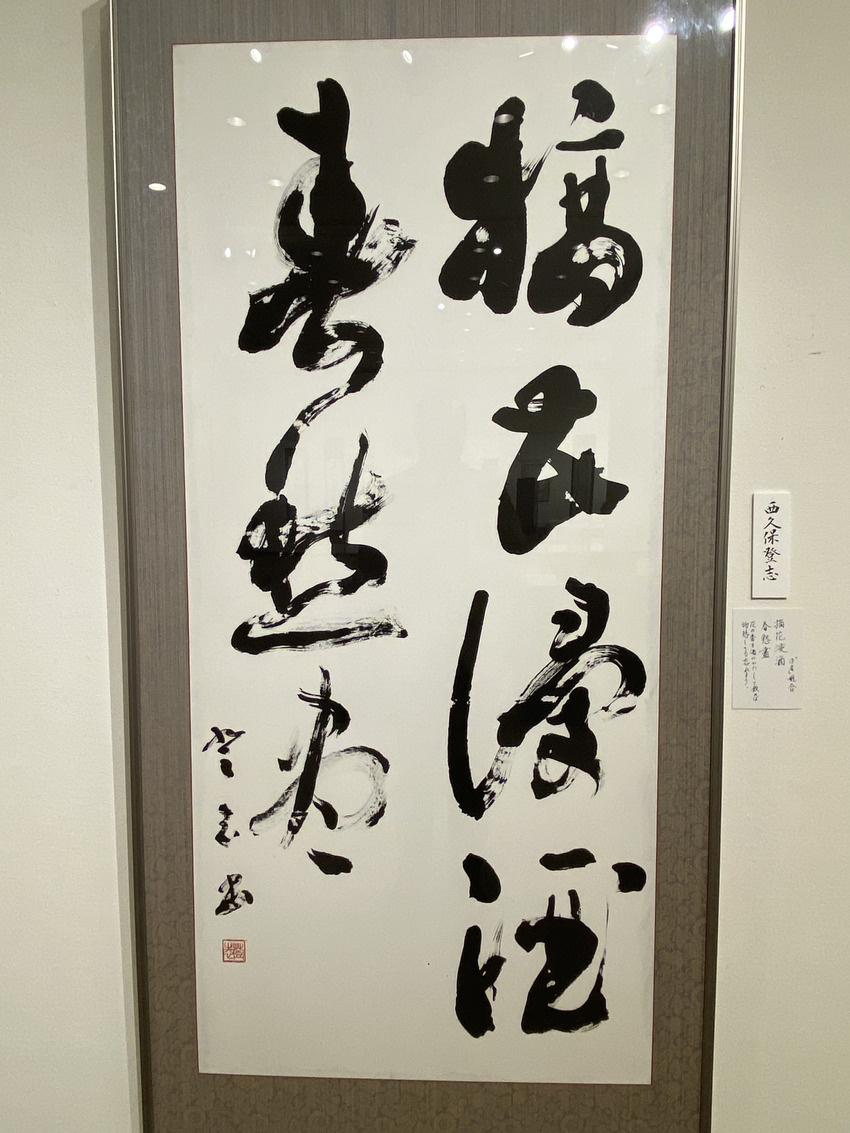 摘花浸酒
春愁尽
登志書
西久保登志
摘花浸酒
春愁盡
姚合